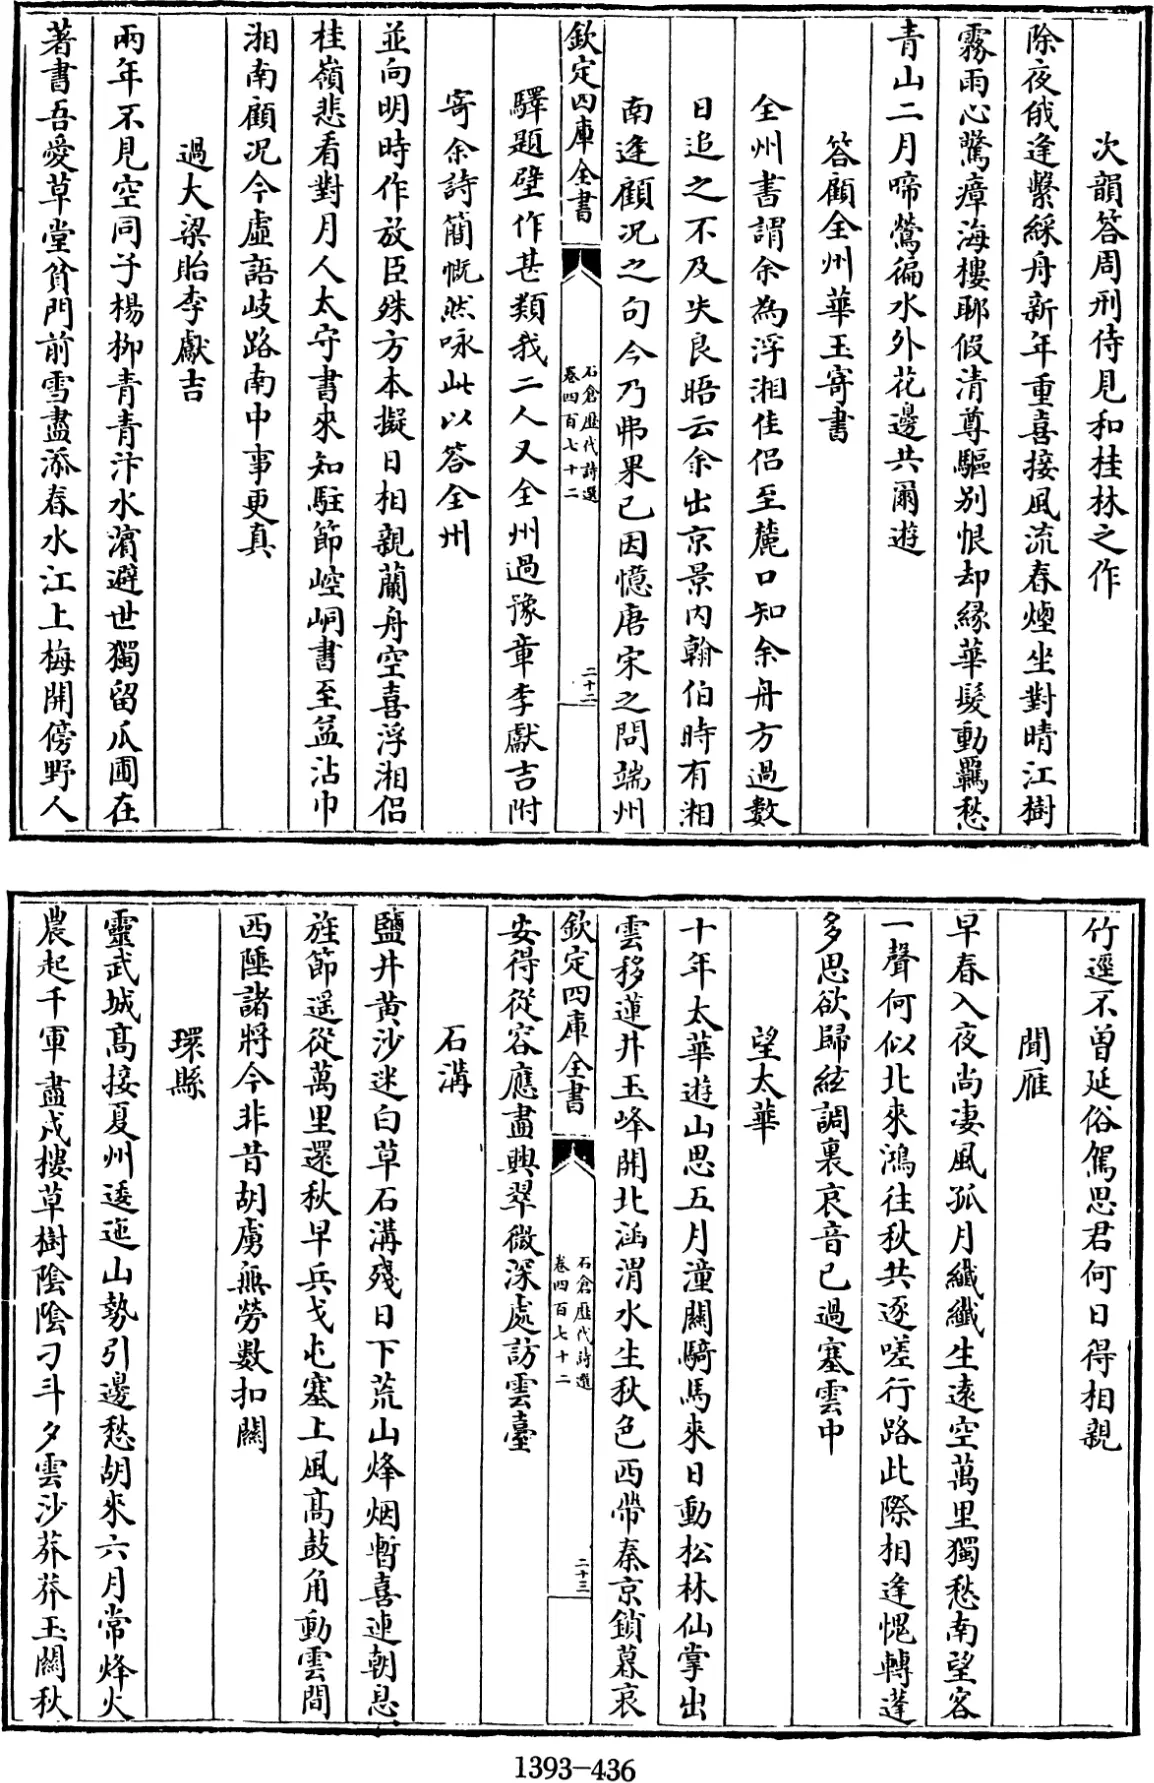 次韻答周刑侍見和桂林之作
除夜俄逢繫綵舟新年重喜接風流春煙坐對晴江樹
霧雨心驚瘴海樓聊假清尊驅别恨却緣華髮動羈愁
青山二月啼鶯徧水外花邊共爾遊
答顧全州華玉寄書
全州書謂余為浮湘佳侣至麓口知余舟方過數
日追之不及失良晤云余出京景内翰伯時有湘
南逢顧况之句今乃弗果已因憶唐宋之問端州
欽定四庫全書
石倉歴代詩選
卷四百七十二
二十二
驛題壁作甚類我二人又全州過豫章李獻吉附
寄余詩簡慨然咏此以答全州
並向明時作放臣殊方本擬日相親蘭舟空喜浮湘侣
桂嶺悲看對月人太守書來知駐節崆峒書至益沾巾
湘南顧况今虚語岐路南中事更真
過大梁貽李獻吉
兩年不見空同子楊柳青青汴水濱避世獨留瓜圃在
著書吾愛草堂貧門前雪盡添春水江上梅開傍野人
竹逕不曾延俗駕思君何日得相親
聞雁
早春入夜尚凄風孤月纖纖生遠空萬里獨愁南望客
一聲何似北來鴻往秋共逐嗟行路此際相逢愧轉蓬
多思欲歸絃調裏哀音已過塞雲中
望太華
十年太華遊山思五月潼關騎馬來日動松林仙掌出
雲移蓮井玉峰開北涵渭水生秋色西帶秦京鎖暮哀
欽定四庫全書
石倉歴代詩選
卷四百七十二
二十三
安得從容應盡興翠微深處訪雲臺
石溝
鹽井黄沙迷白草石溝殘日下荒山烽烟暫喜連朝息
旌節遥從萬里還秋早兵戈屯塞上風髙鼓角動雲間
西陲諸將今非昔胡虜無勞數扣關
環縣
靈武城髙接夏州逶迤山勢引邊愁胡來六月常烽火
農起千軍盡戍樓草樹陰陰刁斗夕雲沙莽莽玉關秋
1393-436